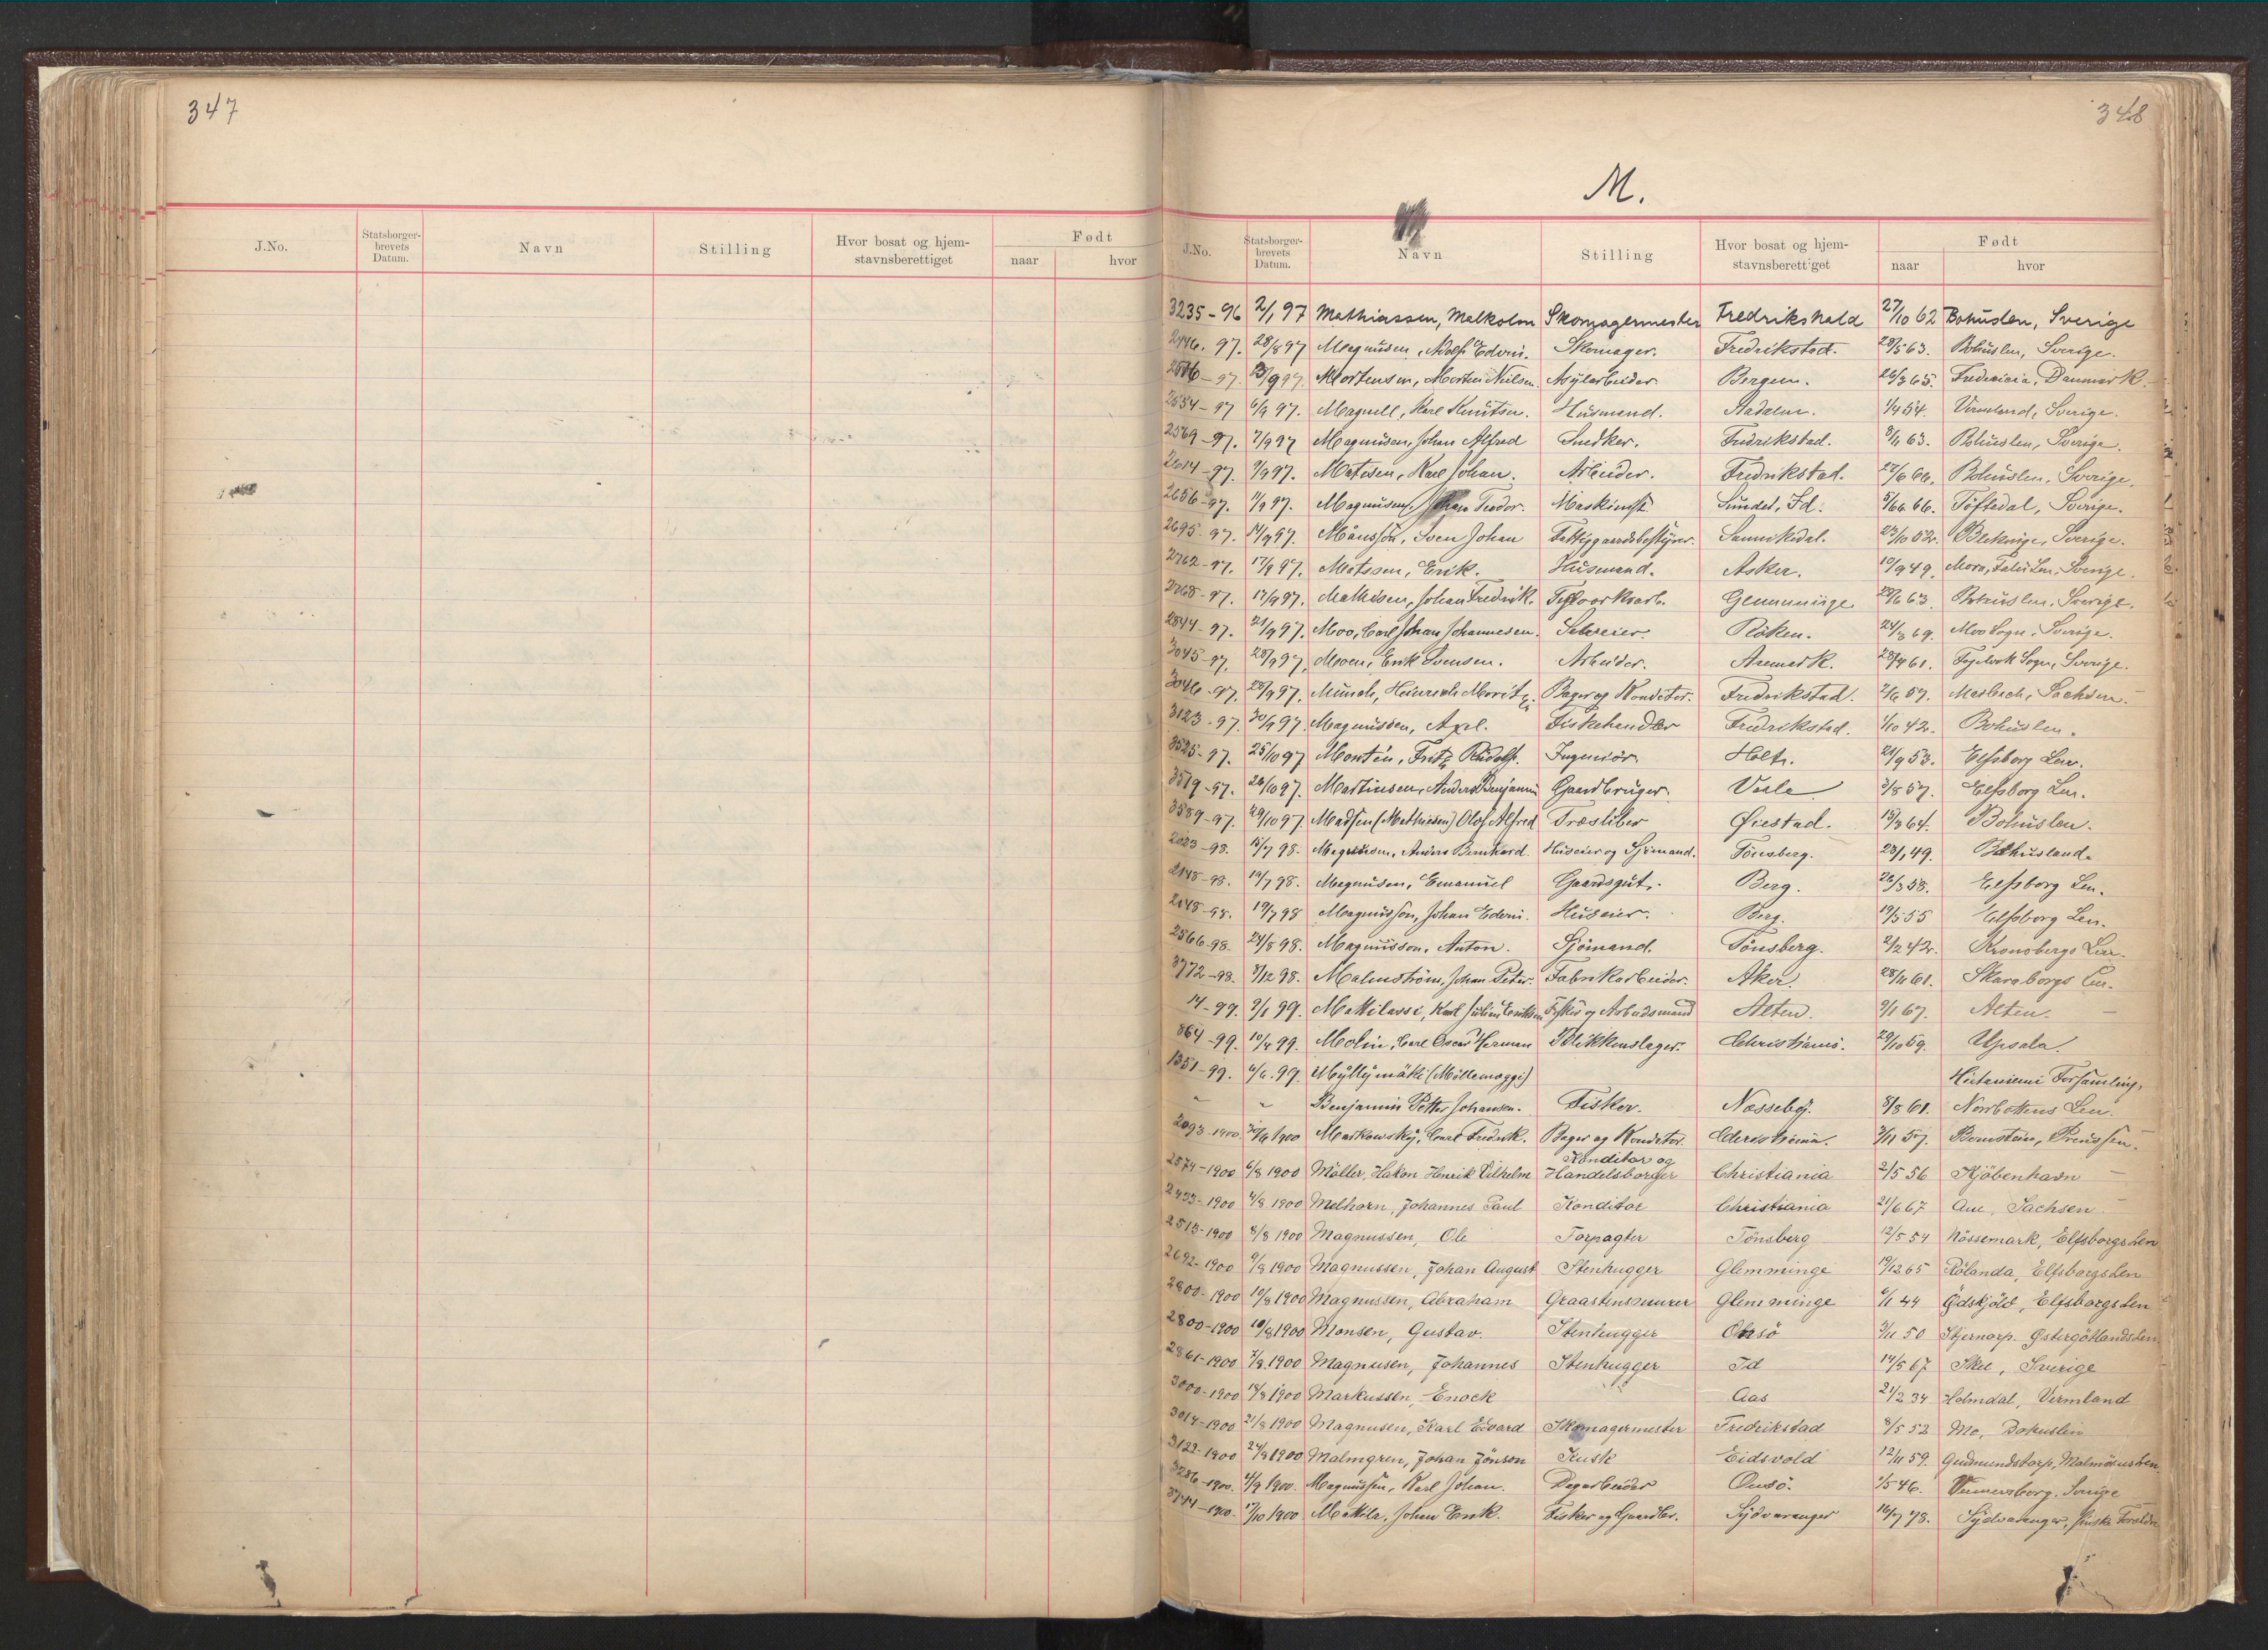 347
J.No.
Statsborger-
brevets
Datum.
Navn
Stilling
Hvor bosat og hjem-
stavnsberettiget
Født
naar
hvor
348
M.
J.No.
Statsborger-
brevets
Datum.
Navn
Stilling
Hvor bosat og hjem-
stavnsberettiget
Født
naar
hvor
3235-96 2/1 97 Mathiassen, Malkolm Skomagermester Fredrikshald 27/10 62 Bohuslen, Sverige
97. 28/8 97 Magnusen, Adolf Edvin. Skomager. Fredrikstad. 63. Bohuslen, Sverige.
97. Mortensen, Morten Nielsen. Asylarbeider. Bergen. 26/3 65. Fredericia, Danmark.
2554-97 6/9 97. Magnell, Karl Knutsen. Husmand. Aadalen. 54. Vermland, Sverige.
2569-97. 7/9 97 Magnusen, Johan Alfred Snedker. Fredrikstad. 63. Bohuslen, Sverige.
2614-97. 9/9 97. Matisen, Karl Johan. Arbeider. Fredrikstad. 27/6 66. Bohuslen, Sverige.
2656-97. 11/9 97. Magnusen, Johan Teodor. Maskinist. Sundet, Id. 66. Töftedal, Sverige.
2695-97. 14/9 97. Månsson, Sven Johan Fattiggaardsbestyrer. Sannikedal. 23/10 52. Blekinge, Sverige.
2762-97. 17/9 97. Matsson, Erik. Husmand. Asker. 19/9 49. Mora, Falu Len, Sverige.
2768-97. 17/9 97. Mathisen, Johan Fredrik. Glemminge 63. Bohuslen, Sverige.
2844-97. 21/9 97. Moo, Carl Johan Johannesen. Selveier. Röken. 24/3 69. Moo Sogn, Sverige.
3045-97. 28/9 97. Moen, Erik Svensen. Arbeider. Aremark. 61. Sogn, Sverige.
3046-97. 28/9 97. Münch, Heinrich Moritz. Bager og Konditor. Fredrikstad. 57. Sachsen.
3123-97. 30/9 97. Magnussen, Axel. Fiskehandler Fredrikstad. 1/10 42. Bohuslen.
3525-97. 25/10 97 Montén, Fritz Rudolf. Ingeniör. Holt. 21/9 53. Elfsborg Len.
3519-97. 26/10 97. Martinsen, Anders Benjamin Gaardbruger. Vaale 3/8 57. Elfsborg Len.
3589-97. 29/10 97 Madsen (Mathiesen) Olof Alfred Træsliber Øiestad. 64. Bohuslen.
2023-98. 15/7 98. Magnusen, Anders Bernhard. Huseier og Sjömand. Tönsberg. 23/1 49. Bohusland.
2148-98. 19/7 98. Magnusen, Emanuel Gaardsgut. Berg. 58. Elfsborg Len.
2148-98. 19/7 98 Magnusson, Johan Edvin. Huseier. Berg. 19/5 55 Elfsborg Len.
2566-98. 24/8 98. Magnusson, Anton. Sjömand. Tönsberg. 2/2 42. Kronobergs Len.
3772-98. 8/12 98. Malmström, Johan Peter. Fabrikarbeider. Aker. 28/11 61. Skaraborgs Len.
14-99. 2/1 99. Mattilassi, Karl Julius Eriksen Fisker og Arbeidsmand Alten. 9/1 67. Alten.
864-99. 10/4 99. Molin, Carl Oscar Herman Blikkenslager. Christiania. 29/10 59. Upsala.
1351-99. 6/6 99. Myllymäki (Möllemaggi) Hietaniemi Forsamling,
" " Benjamin Petter Johansen. Fisker. Næsseby. 8/8 61. Norrbottens Len.
2093-1900. 1900 Markowsky, Carl Fredrik. Bager og Konditor. Christiania. 3/11 57. Preussen.
Konditor og
2574-1900 6/8 1900 Møller, Hakon Henrik Vilhelm Handelsborger Christiania 2/5 56 Kjöbenhavn
2433-1900 4/8 1900 Melhorn, Johannes Paul Konditor Christiania 21/6 67 Aue, Sachsen
2513-1900 8/8 1900 Magnussen, Ole Forpagter Tönsberg 12/5 54 Nössemark, Elfsborgs Len
2692-1900 9/8 1900 Magnussen, Johan August Stenhugger Glemminge 19/12 65 Rölanda, Elfsborgs Len
2800-1900 10/8 1900 Magnussen, Abraham Graastensmurer Glemminge 44 Ödskjöld, Elfsborgs Len
2800-1900 10/8 1900 Monsen, Gustav. Stenhugger Onsö 3/11 50 Stjernorp. Østergötlands Len
2861-1900 1900 Magnusen, Johannes Stenhugger Id 14/5 67 Skee, Sverige
3000-1900 18/8 1900 Markussen, Enock Aas 21/2 34 Holmdal, Vermland
3014-1900 21/8 1900 Magnusen, Karl Edvard Skomagermester Fredrikstad 8/5 52 Mo, Bohuslen
3122-1900 24/8 1900 Malmgren, Johan Jönson Kusk Eidsvold 12/11 59. Gudmundstorp, Malmöhus Len.
3286-1900. 4/9 1900. Magnussen, Karl Johan. Dagarbeider Onsö. 46. Venersborg, Sverige
3744-1900. 17/10 1900 Mattila, Johan Erik. Fisker og Gaardbr. Sydvaranger 16/7 78. Sydvaranger, finske Foreldre